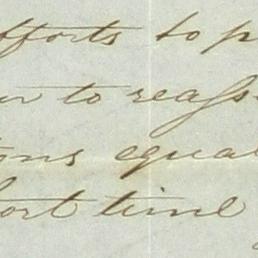 efforts to p
to reass
ions equa
hort time